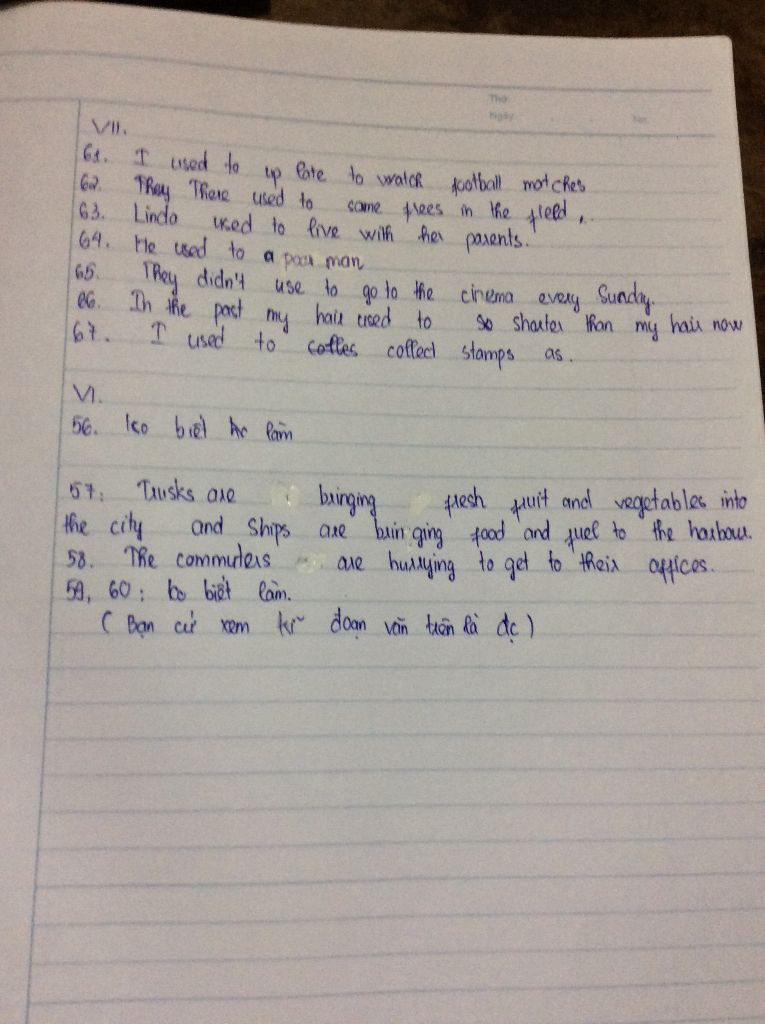 Thứ
Ngày
No.
VII.
61. I used to up late to watch football matches
62. They There used to some trees in the field.
63. Linda used to live with her parents.
64. He used to a poor man
65. They didn't use to go to the cinema every Sunday.
66. In the past my hair used to so shorter than my hair now
67. I used to collect stamps as.
VI.
56. ko biết làm
57: Trusks are bringing fresh fruit and vegetables into
the city and ships are bringing food and fuel to the harbour.
58. The commuters are hurrying to get to their offices.
59, 60: ko biết làm.
(Bạn cứ xem kĩ đoạn văn trên là đc)